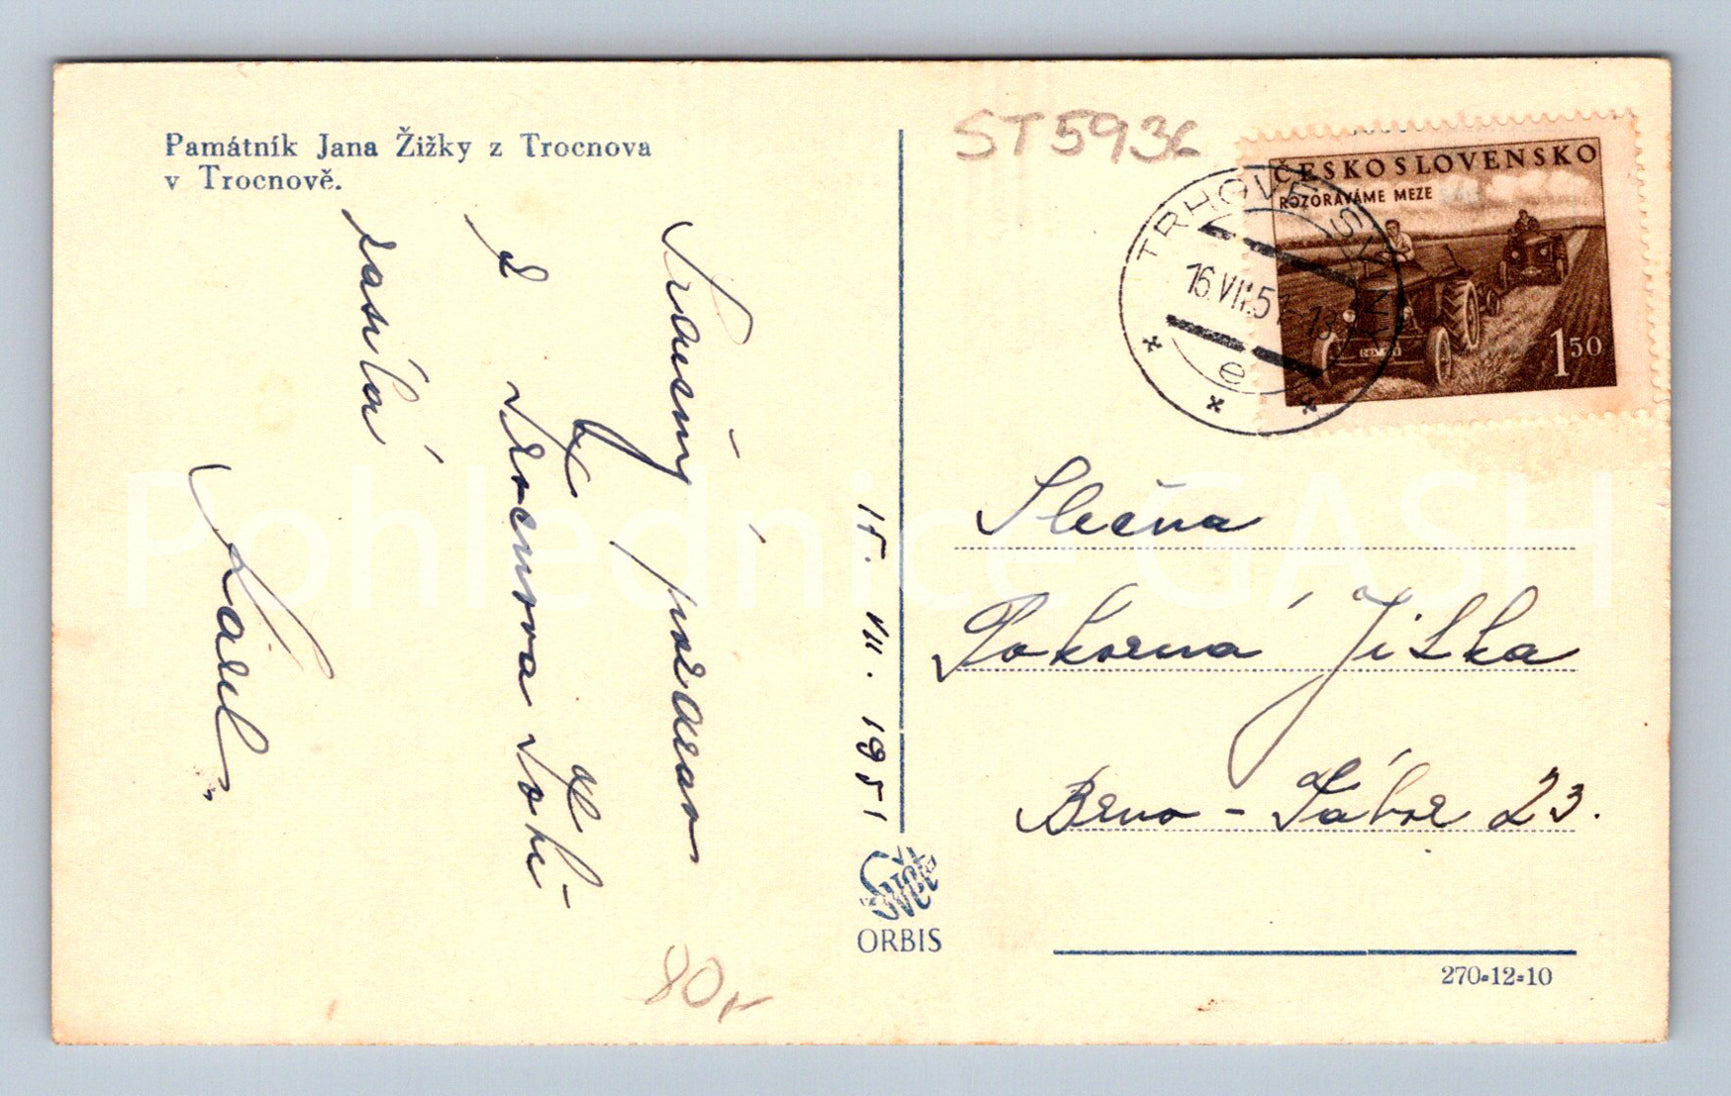 Památník Jana Žižky z Trocnova
v Trocnově.
ST5936
ČESKOSLOVENSKO
ROZORÁVÁME MEZE
1 50
TRHOVÉ SVINY
16.VII.51 13
e
Krásný pozdrav
z
Trocnova
zasílá
Karel
15. VII. 1951
Slečna
Pokorná Jitka
Brno - Tábor 23.
ORBIS
270-12-10
80,-
Pohlednice GASH